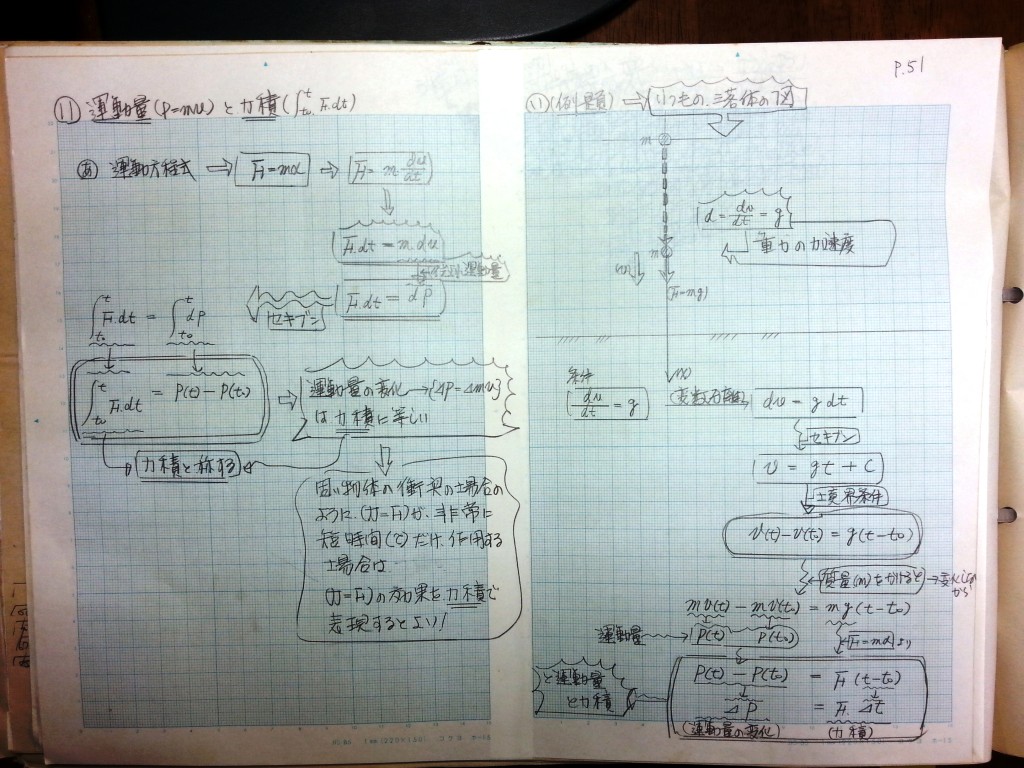 P.51
(1) 運動量(P=mv)と力積(∫t0 t F.dt)
(あ) 運動方程式 ⇒ F=mα ⇒ F= m dv/dt
F.dt = m.dv
運動量
F.dt = dP
セキブン
∫t0 t F.dt = ∫t0 t dP
∫t0 t F.dt = P(t)-P(t0)
運動量の変化→{ΔP=Δmv}
は力積に等しい
力積と称する
固い物体の衝突の場合の
ように、(力=F)が、非常に
短時間(t)だけ、作用する
場合は、
(力=F)の効果を力積で
表現するとよい!
(い)(例題) ⇒ いつもの、落体の図
m
α = dv/dt = g
重力の加速度
m
F=mg
(x)
条件
dv/dt = g
(変数分離)
dv = g dt
セキブン
v = gt + C
境界条件
v(t)-v(t0) = g(t-t0)
質量(m)をかけると→変化しない
から
mv(t)-mv(t0) = mg(t-t0)
運動量 → P(t) P(t0)
F=mαより
P(t) - P(t0) = F(t-t0)
ΔP = F. Δt
(運動量の変化) (力積)
と運動量
と力積